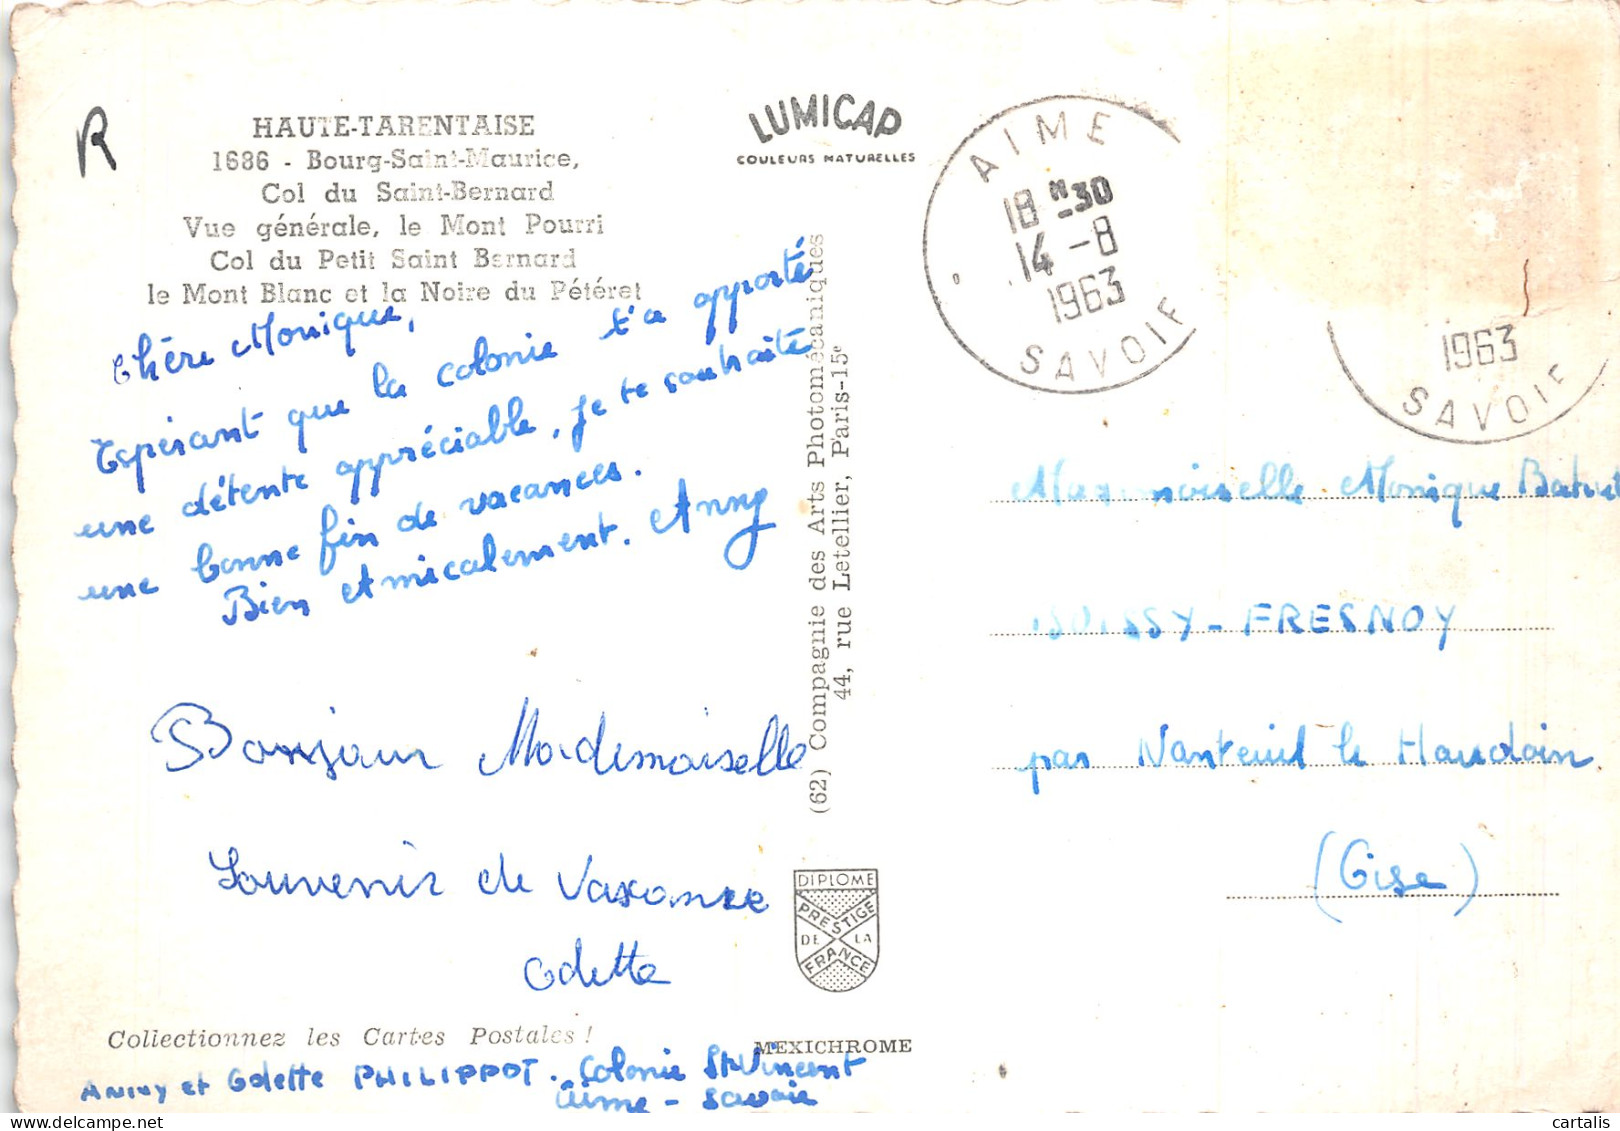 R
HAUTE-TARENTAISE
1686 - Bourg-Saint-Maurice,
Col du Saint-Bernard
Vue générale, le Mont Pourri
Col du Petit Saint Bernard
le Mont Blanc et la Noire du Pétéret
LUMICAP
COULEURS NATURELLES
AIME
18 H 30
14 -8
1963
SAVOIE
1963
SAVOIE
Chère Monique,
Espérant que la colonie t'a apporté
une détente appréciable, je te souhaite
une bonne fin de vacances.
Bien Amicalement. Anny
Bonjour Mademoiselle
Souvenir de Vacance
Odette
(62) Compagnie des Arts Photomécaniques
44, rue Letellier, Paris-15e
Mademoiselle Monique
BOISSY-FRESNOY
par Nanteuil le Haudoin
(Oise)
DIPLOME
PRESTIGE
DE LA
FRANCE
Collectionnez les Cartes Postales !
MEXICHROME
Anny et Odette PHILIPPOT. Colonie St Vincent
Aime - Savoie
cartalis